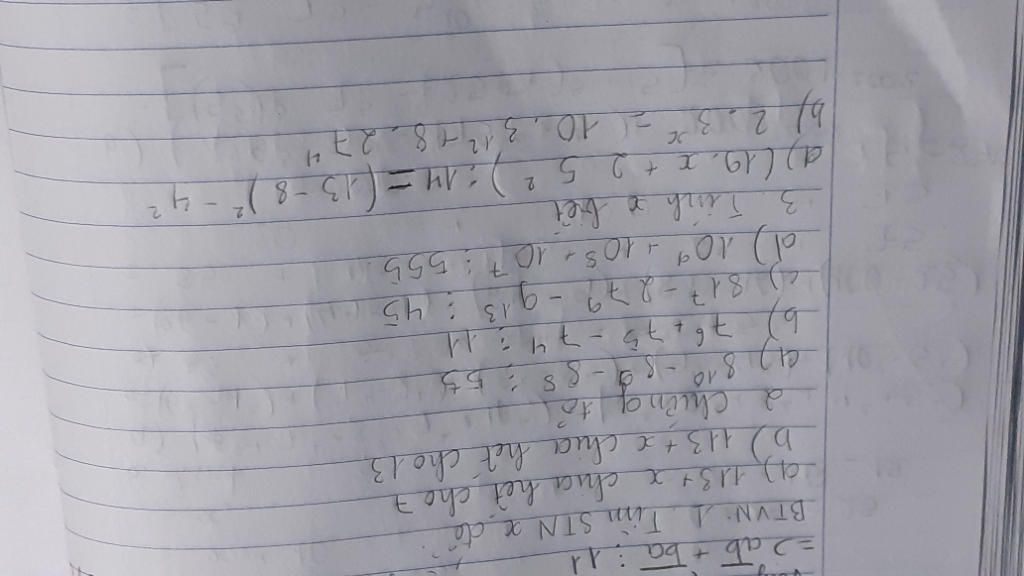 => ab + ba ⋮ 11
BTVN: 1. Tìm STN x để
a) 113 + x chia hết cho 7
b) 113 + x chia hết cho 13
2 chứng tỏ
a) 8¹⁰ - 8⁹ - 8⁸ ⋮ 55
b) 7⁶ + 7⁵ - 7⁴ ⋮ 11
c) 81⁷ - 27⁹ - 9¹³ ⋮ 45
d) 10⁹ + 10⁸ + 10⁷ ⋮ 555
3. Tính x biết
a) (19. x + 2 5²) : 14 = (13 - 8)² - 4²
b) 2. 3ˣ = 10. 3¹² + 8. 27⁴